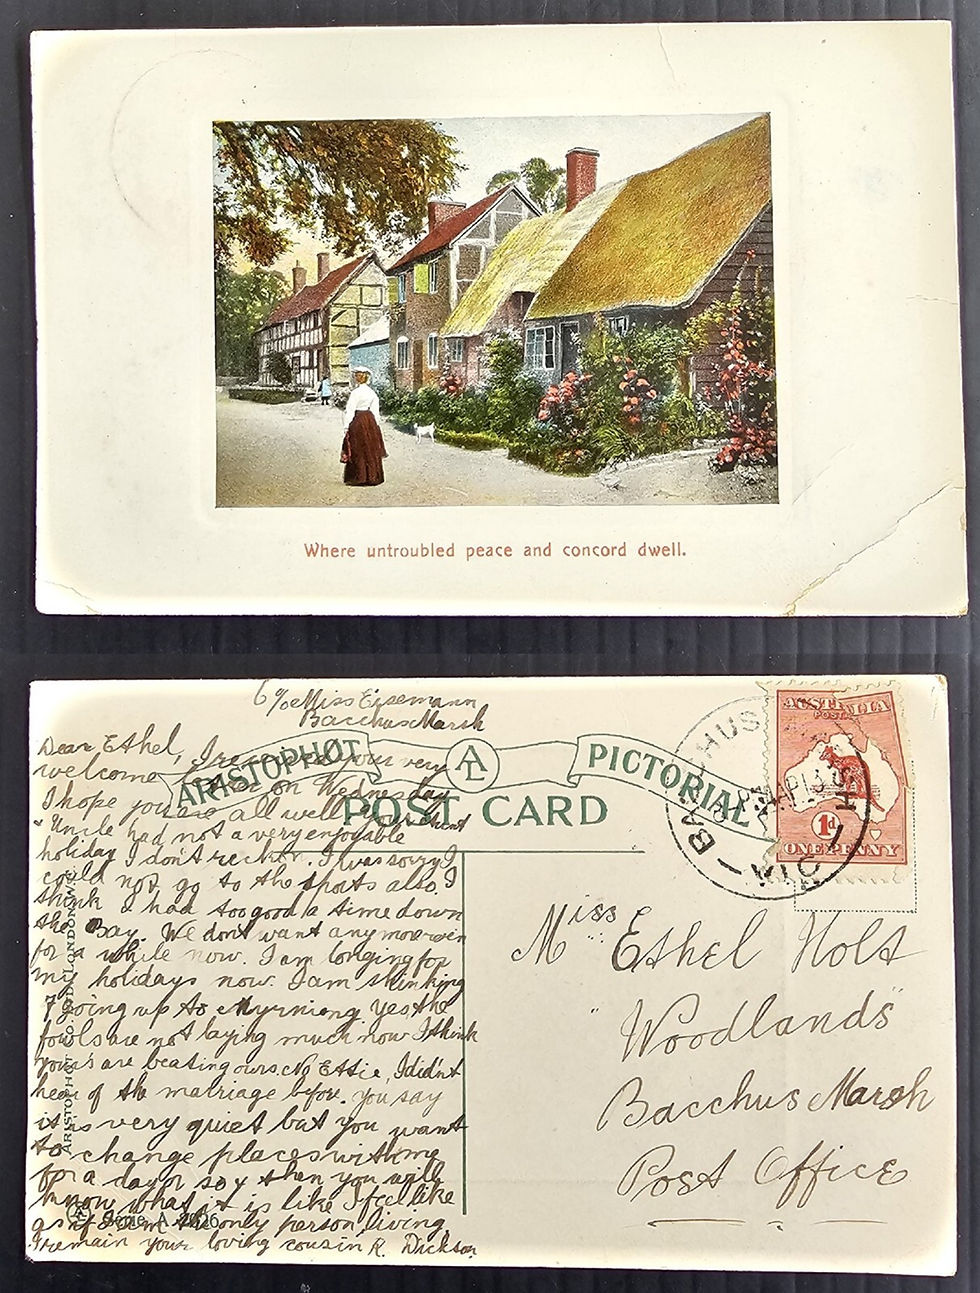 Where untroubled peace and concord dwell.
c/o Miss Eisemann
Bacchus Marsh
ARISTOPHOT AL PICTORIAL
POST CARD
AUSTRALIA
POSTAGE
1d
ONE PENNY
BACCHUS
VIC
Dear Ethel, I received your very
welcome on Wednesday
I hope you are all well
"Uncle had not a very enjoyable
holiday I don't reckon. I was sorry I
could not go to the sports also, I
think I had too good a time down
the Bay. We don't want any more
for a while now. I am longing for
my holidays now. I am thinking
of going up to Myrniong yes the
fowls are not laying much now I think
yours are beating ours. No Ettie, I didn't
hear of the marriage before. you say
it is very quiet but you want
to change places with me
for a day or so & then you will
know what it is like I feel like
as if I am the only person living.
I remain your loving cousin R. Dickson
ARISTOPHOT CO. LTD. LONDON. W.C.
Serie A
Miss Ethel Holt
"Woodlands"
Bacchus Marsh
Post Office